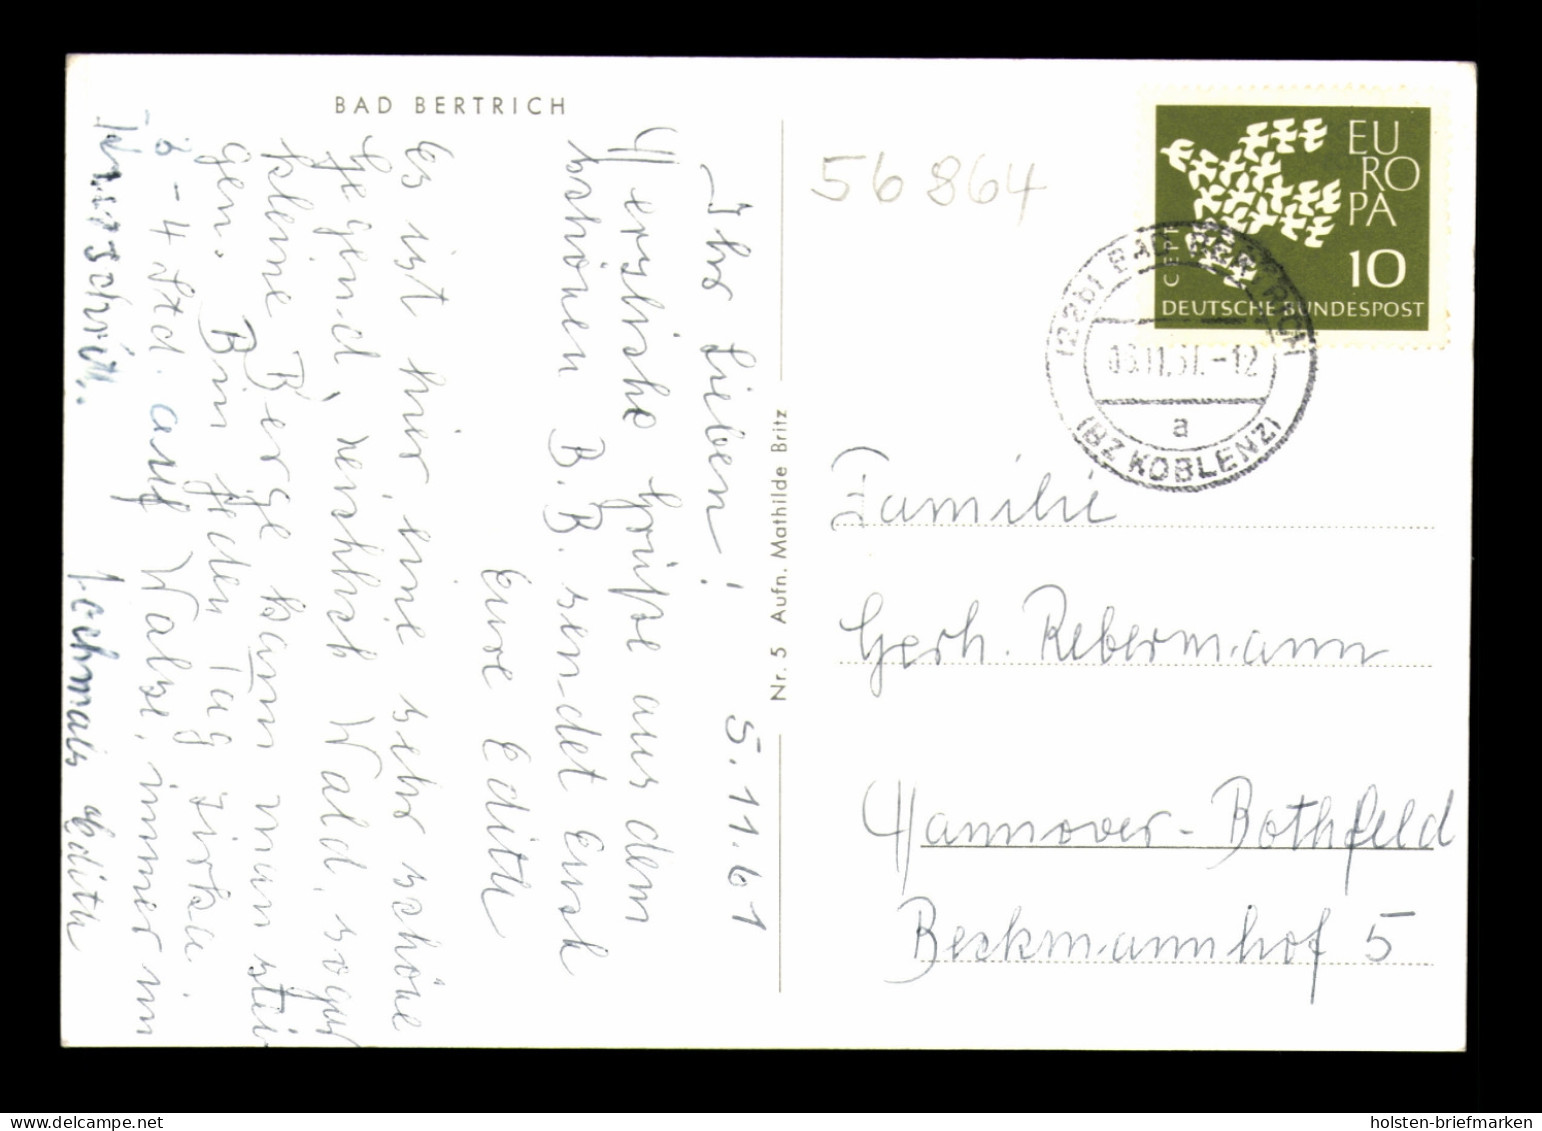 BAD BERTRICH
5.11.61
Ihr Lieben!
Herzliche Grüße aus dem
schönen B.B. sendet Euch
Eure Edith
Es ist hier eine sehr schöne
Gegend, reichlich Wald, sogar
kleine Berge kann man stei
gen. Bin jeden Tag zirka
3-4 Std. auf Walze, immer im
nochmals Edith
Nr. 5 Aufn. Mathilde Britz
56864
EU
RO
PA
10
DEUTSCHE BUNDESPOST
(22b) BAD BERTRICH
-12
a
(BZ KOBLENZ)
Familie
Gerh. Rebermann
Hannover-Bothfeld
Beckmannhof 5
www.delcampe.net
holsten-briefmarken